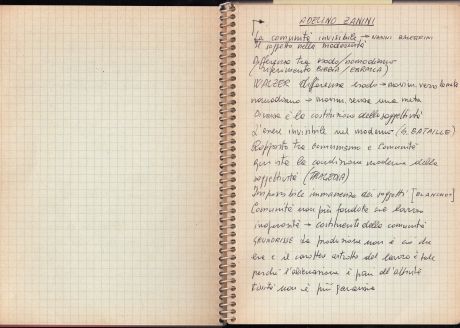 ADELINO ZANINI
La comunità invisibile → NANNI BALESTRINI
Il soggetto nella modernità
Differenza tra esodo/nomadismo
(riferimento BIBBIA /
WALZER differenza esodo → movim. verso la meta
nomadismo → movim. senza una meta
Diversa è la costituzione della soggettività
L'essere invisibile nel moderno (G. BATAILLE)
Rapporto tra comunismo e comunità
la condizione moderna della
soggettività
Impossibile immanenza dei soggetti [BLANCHOT]
Comunità non più fondata sul lavoro
inoperosità → costituenti della comunità
GRUNDRISSE la produzione non è ciò che
era e il carattere astratto del lavoro è tale
perché l'alienazione è pari all'attività
non è più garanzia